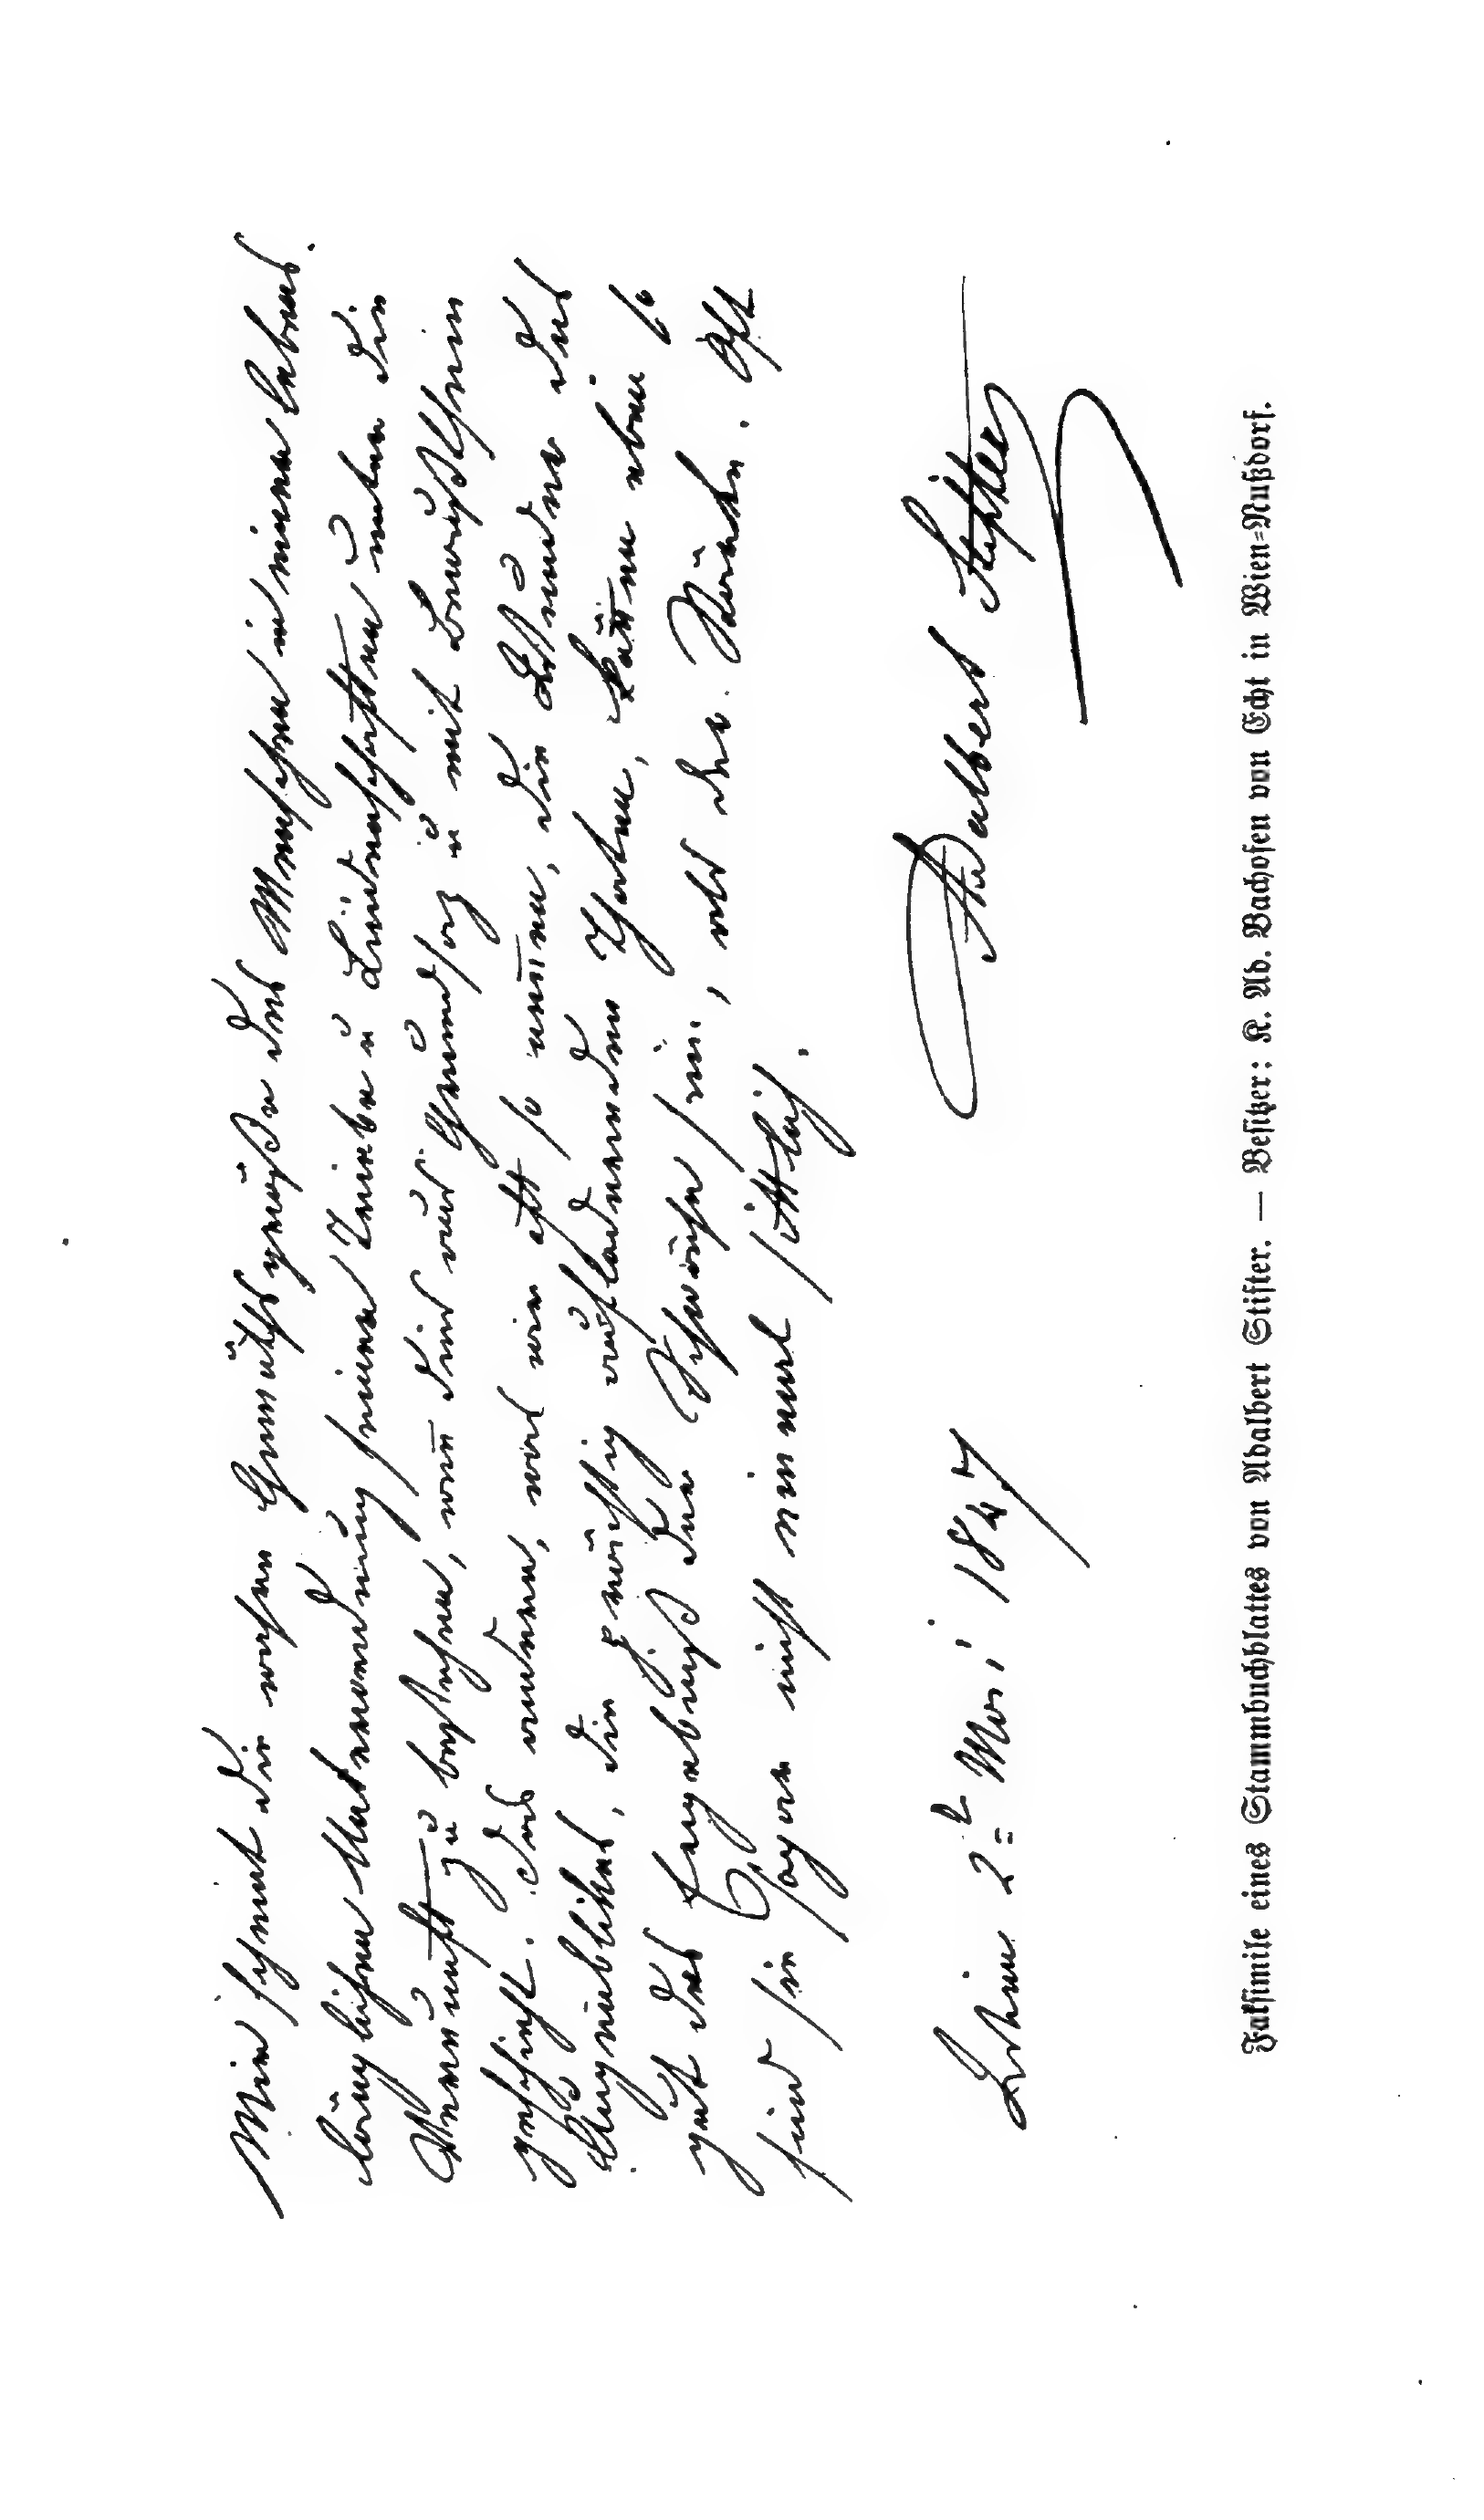 Mir scheint die wahre Gemüthsgröße des Menschen in einer lebens-
länglichen Unterordnung seiner Triebe u Leidenschaften unter die
Vernunft zu bestehen, wen̄ dies aus Grundsaz u mit Bewußtsein
geschieht. Das andere, was wir oft so nen̄en, die des
Augenblikes, die auflodernden Thaten, kan̄ eben so
gut das Ergebniß der Schwäche sein, als der Stärke. Oft
sind sie sogar nicht einmal sittlich.
Wien 2t Mai 1847
Adalbert Stifter
Faksimile eines Stammbuchblattes von Adalbert Stifter. — Besitzer: K. Ad. Bachofen von Echt in Wien-Nußdorf.